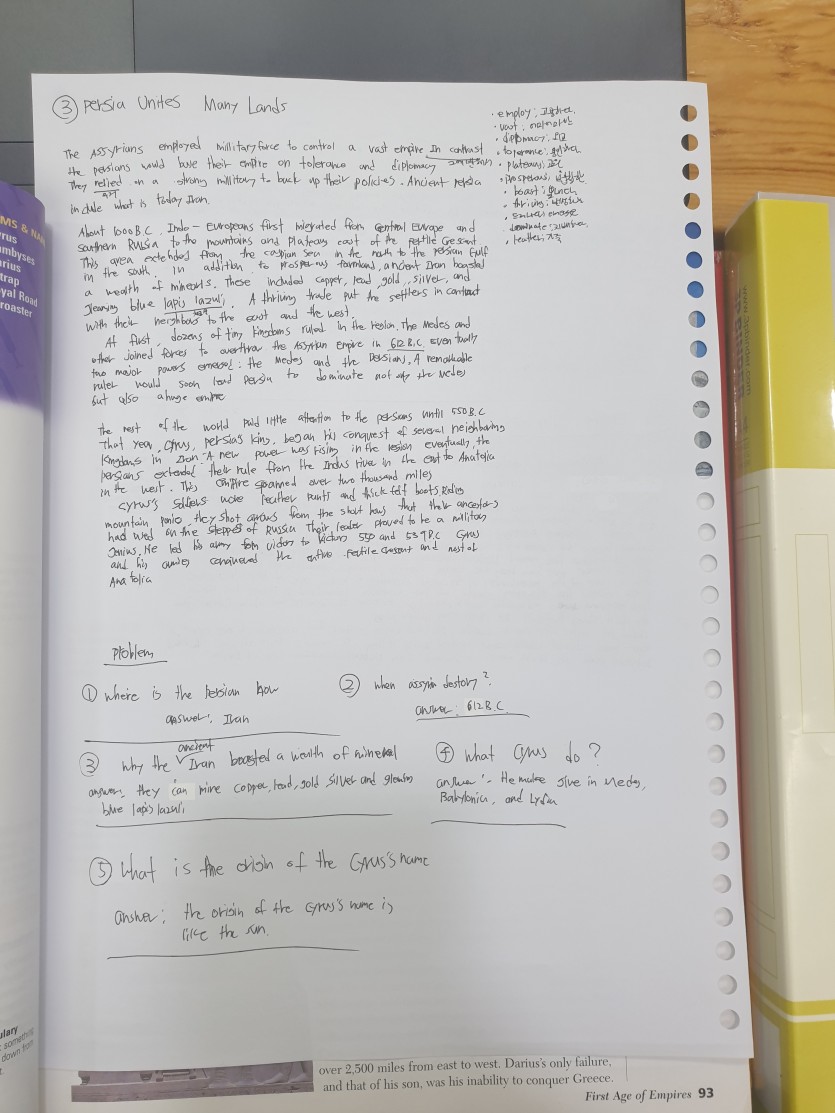 ③ Persia Unites Many Lands
The Assyrians employed millitary force to control a vast empire In contrast
the persians would base their empire on tolerance and diplomacy
They relied on a strong millitary to back up their policies. Ancient persia
include what is today Iran.
About 1000 B.C. Indo - Europeans first migrated from Central Europe and
southern Russia to the mountains and plateaus east of the Fertile Crescent
This area extended from the caspian sea in the north to the persian Gulf
in the south. in addition to prosperous farmland, ancient Iran boasted
a wealth of minerals. These included copper, lead, gold, silver, and
gleaming blue lapis lazuli. A thriving trade put the settlers in contact
with their neighbors to the east and the west.
At first, dozens of tiny kingdoms ruled in the region. The Medes and
other joined forces to overthrow the Assyrian Empire in 612 B.C. Eventually
two major powers emerged: the Medes and the Persians. A remarkable
ruler would soon lead Persia to dominate not the Medes
but also a huge empire
The rest of the world paid little attention to the persians until 550 B.C
That year, Cyrus, persia's king, began his conquest of several neighboring
kingdoms in Iran. A new power was rising in the region eventually, the
persians extended their rule from the Indus river in the east to Anatolia
in the west. This empire spanned over two thousand miles
Cyrus's soldiers wore leather pants and thick felt boots Riding
mountain they shot arrows from the short bows that their ancestors
had used on the steppes of Russia Their leader proved to be a military
genius. He led his army from victory to victory 550 and 539 B.C Cyrus
and his conquered the entire Fertile crescent and most of
Anatolia
· employ: 고용하다
· vast:
· diplomacy: 외교
· tolerance:
· plateaus: 고원
· prosperous:
· boast:
· thriving:
· emerge
· dominate:
· leather: 가죽
problem
① where is the persian now
answer: Iran
② when assyria destory?
answer: 612 B.C.
③ why the ancient Iran boasted a wealth of mineral
answer: they can mine copper, lead, gold silver and gleaming
blue lapis lazuli
④ what Cyrus do?
answer: He make give in Medes,
Babylonia, and Lydia
⑤ What is the origin of the Cyrus's name
answer: the origin of the Cyrus's name is
like the sun.
MS & NA
rus
mbyses
rius
trap
yal Road
roaster
ulary
something
down from
over 2,500 miles from east to west. Darius's only failure,
and that of his son, was his inability to conquer Greece.
First Age of Empires 93